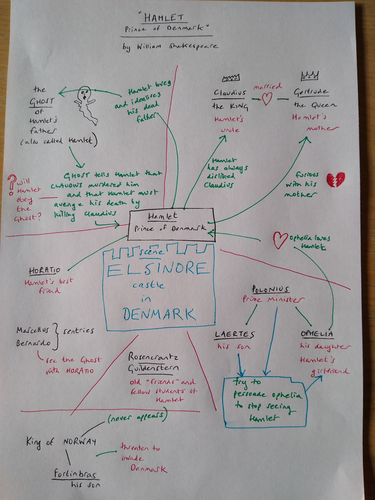 "HAMLET
Prince of Denmark"
by William Shakespeare
the
GHOST
of
Hamlet's
father
(also called Hamlet)
Hamlet loves
and idealises
his dead
father
Claudius
the KING
Hamlet's
uncle
married
Gertrude
the Queen
Hamlet's
mother
GHOST tells Hamlet that
CLAUDIUS murdered him
and that Hamlet must
avenge his death by
killing Claudius
? Will
Hamlet
obey the
Ghost?
Hamlet
has always
disliked
Claudius
furious
with his
mother
Hamlet
Prince of Denmark
Ophelia loves
Hamlet
HORATIO
Hamlet's best
friend
scene
ELSINORE
castle
in
DENMARK
POLONIUS
Prime Minister
LAERTES
his son
OPHELIA
his daughter
Hamlet's
girlfriend
Marcellus
Bernardo
sentries
see the Ghost
with HORATIO
Rosencrantz
Guildenstern
old "friends" and
fellow students of
Hamlet
try to
persuade Ophelia
to stop seeing
Hamlet
(never appears)
King of NORWAY
Fortinbras
his son
threaten to
invade
Denmark